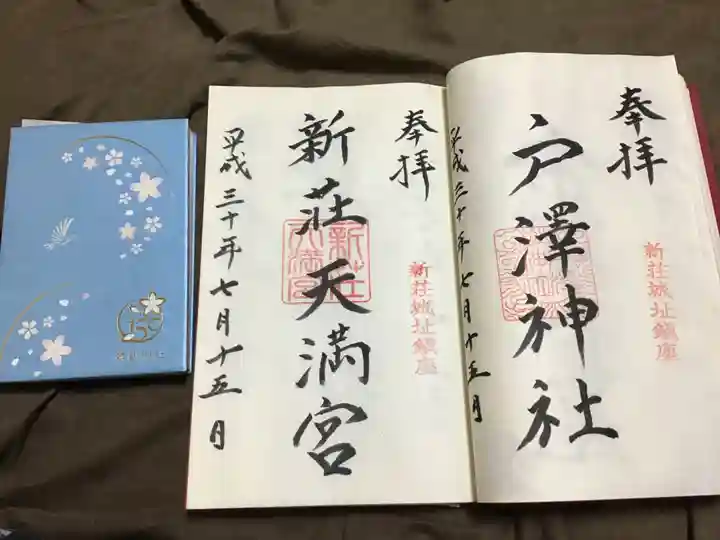 奉拝
新荘城址鎮座
戸澤神社
平成三十年七月十五日
奉拝
新荘城址鎮座
新荘天満宮
新荘天満宮
平成三十年七月十五日